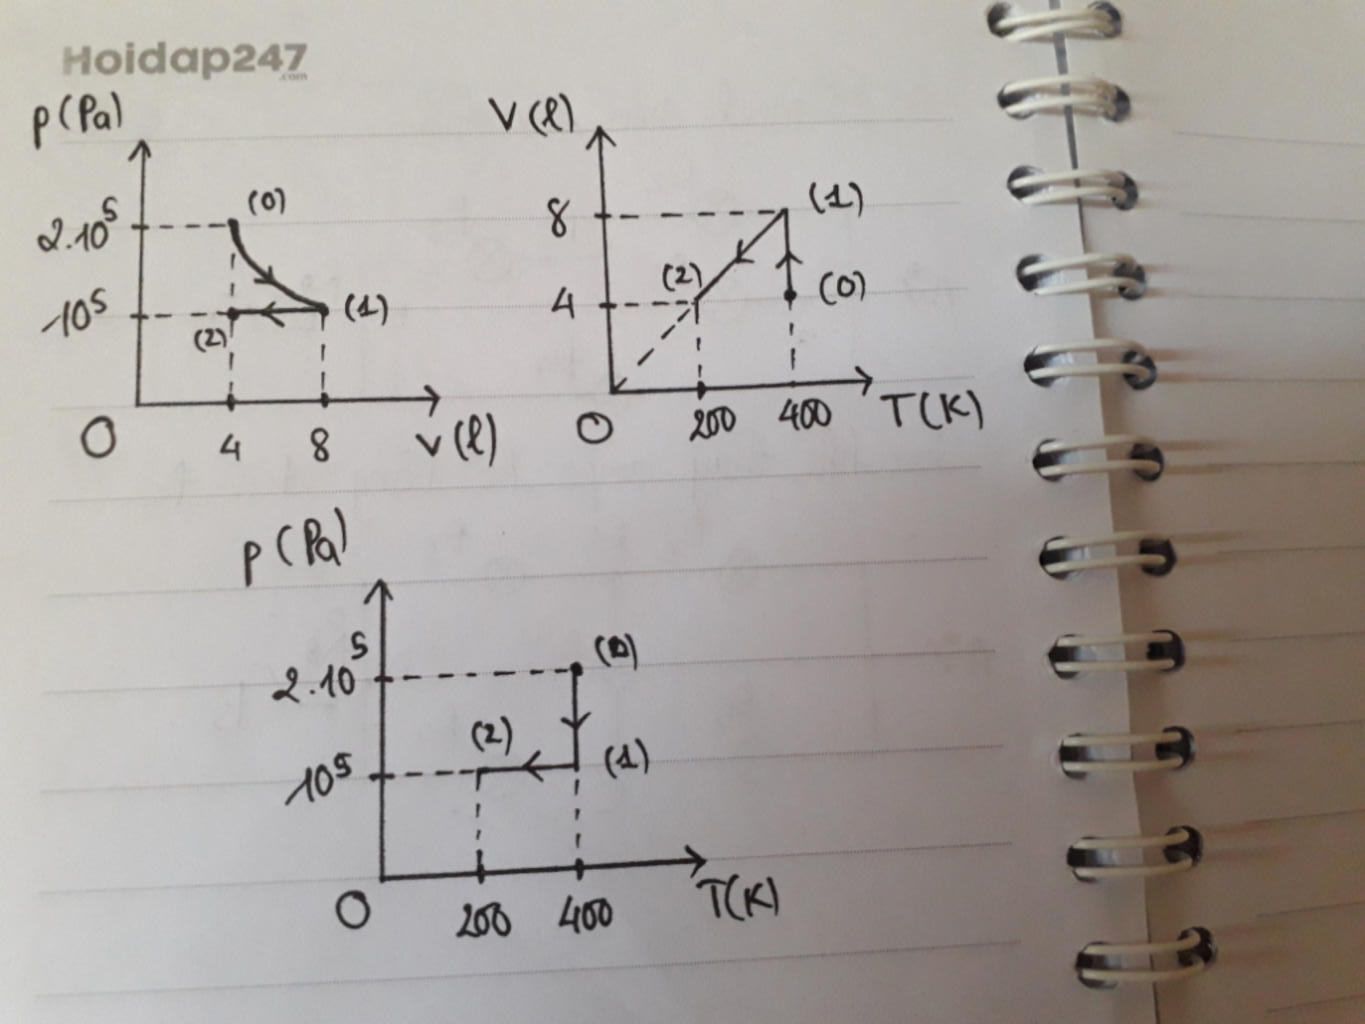 Hoidap247
.com
p (Pa)
2.10⁵
10⁵
(0)
(1)
(2)
O
4
8
V (l)
V (l)
8
4
(1)
(2)
(0)
O
200
400
T (K)
p (Pa)
2.10⁵
10⁵
(0)
(2)
(1)
O
200
400
T(K)